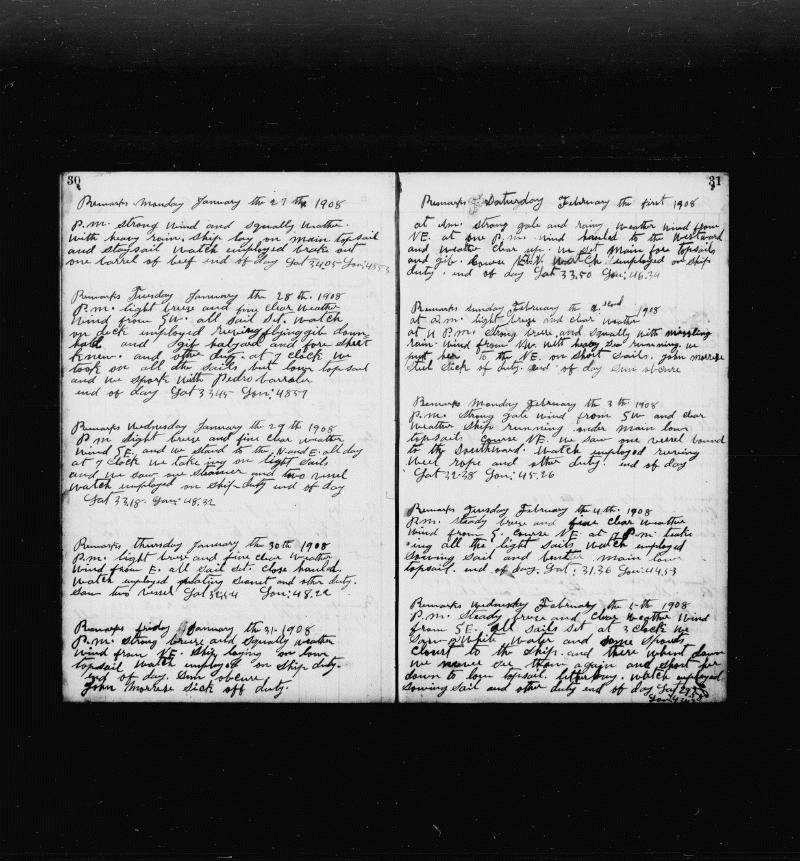 30
Remarks Monday January the 27 th 1908
P.m. strong wind and squally Weather.
With heavy rain. Ship lay on main topsail
and staysail Watch employed brake out
one barrel of beef end of day Lat 34.05 Lon:
Remarks Tuesday January the 28 th. 1908
P.m. light breese and fine clear Weather
Wind from SW. all sail Set. Watch
on deck employed flying gib down
and gib halyard and fore sheet
and other duty. at 7 clock We
took on all the sails, but lower topsail
and We spork With Pedro
end of day Lat 33.45 Lon: 48.57
Remarks Wednesday January the 29 th 1908
P.m light breese and fine clear Weather
Wind SE. and We stand to the N. and E. all day
at 7 clock We take ing on light sails
and We saw one steamer and two vessel
Watch employed on ship duty end of day
Lat 33.18. Lon: 48.32
Remarks thursday January the 30 th 1908
P.m. light breese and fine clear Weather
Wind from E. all sail Set. Close hauld.
Watch employed and other duty.
Saw two vessel Lat 32.54 Lon: 48.22
Remarks friday January the 31. 1908
P.m. Strong breese and Squally Weather
Wind from NE. Ship laying on low
topsail Watch employed on Ship duty.
end of day. Sun obcure
John Morrese Sick off duty.
31
Remarks Saturday February the first 1908
at Am. strong gale and rainy Weather Wind from
NE. at one P.m. Wind hauled to the Westward
and Weather Clear up. We Set Main fore topsails
and gib. Course Watch employed on ship
duty. end of day Lat 33.50 Lon: 46.34
Remarks sunday February the 2. cend 1908
at a.m. light breese and clear Weather
at 4 P.m. Strong breese and squally With missling
rain. Wind from SW. With heavy Sea running. We
put her to the NE. on short Sails. John morrese
Still Sick of duty. end of day Sun obcure
Remarks Monday February the 3 th 1908
P.m. Strong gale Wind from SW and clear
Weather Ship running under main low
topsail. Course NE. We saw one vessel bound
to the Southward. Watch employed reeving
Weel rope and other duty. end of day
Lat 32.38 Lon: 45.26
Remarks Tuesday February the 4 th. 1908
P.m. steady breese and fine clear Weather
Wind from S. Course NE. at 7 P.m. take
ing all the light Sails. Watch employed
Sowing Sail and main low
topsail. end of day. Lat: 31.36 Lon: 44.53
Remarks Wednesday February the 5 th 1908
P.m. Steady breese and Clear Weather Wind
from SE. all sails Set at 3 clock We
Saw Water and some spouts
Close to the Ship. and there Whent down
We never see tham again and short
down to low topsail. Watch employed
Sowing sail and other duty end of day Lat
Lon: